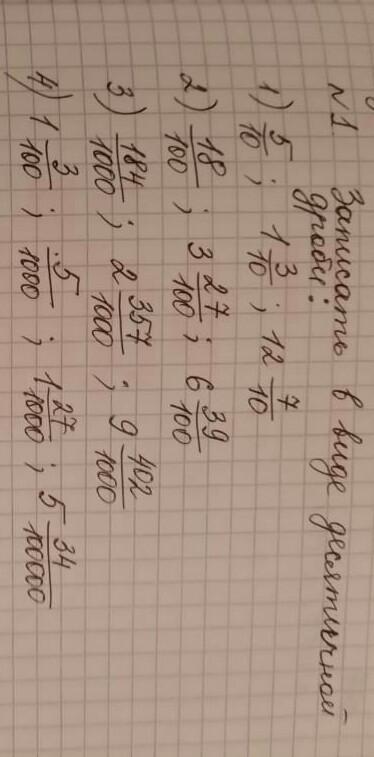 №1. Записать в виде десятичной
дроби:
1) 5/10; 1 3/10; 12 7/10
2) 18/100; 3 27/100; 6 39/100
3) 184/1000; 2 357/1000; 9 402/1000
4) 1 3/100; 5/1000; 1 27/1000; 5 34/100000